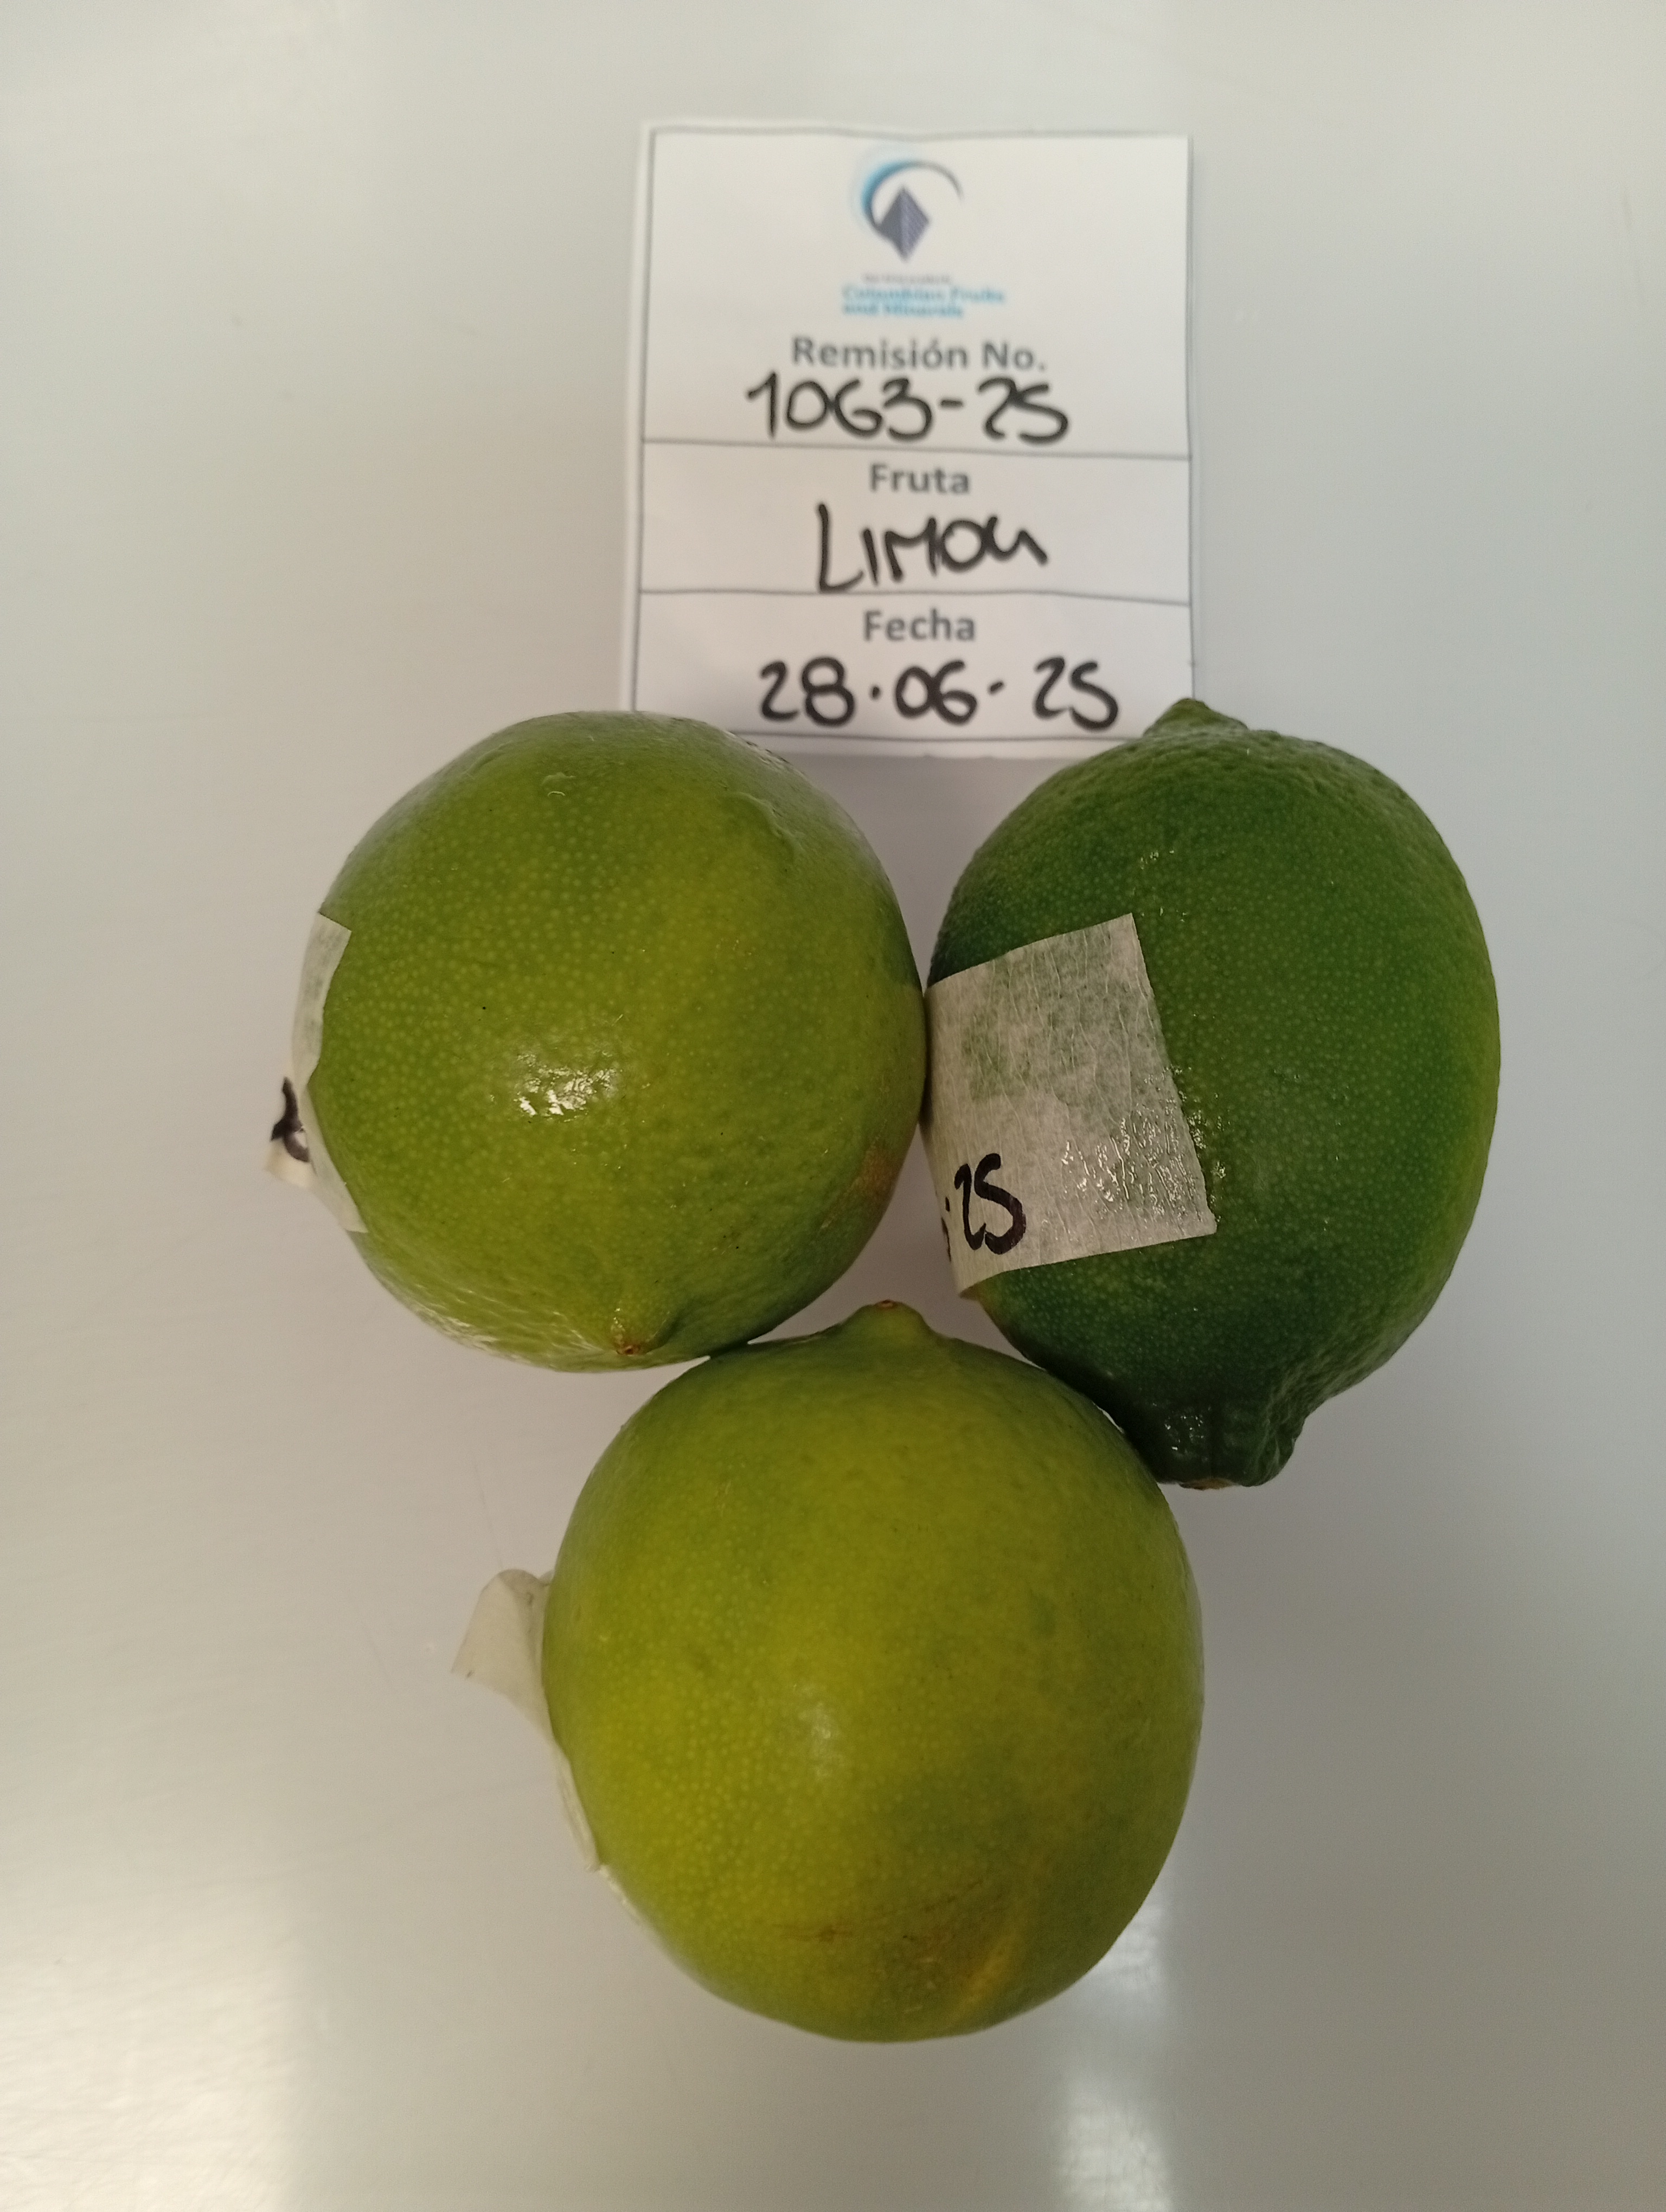 Colombian Fruits
and Minerals
Remisión No.
1063-25
Fruta
LIMON
Fecha
28.06.25
.25